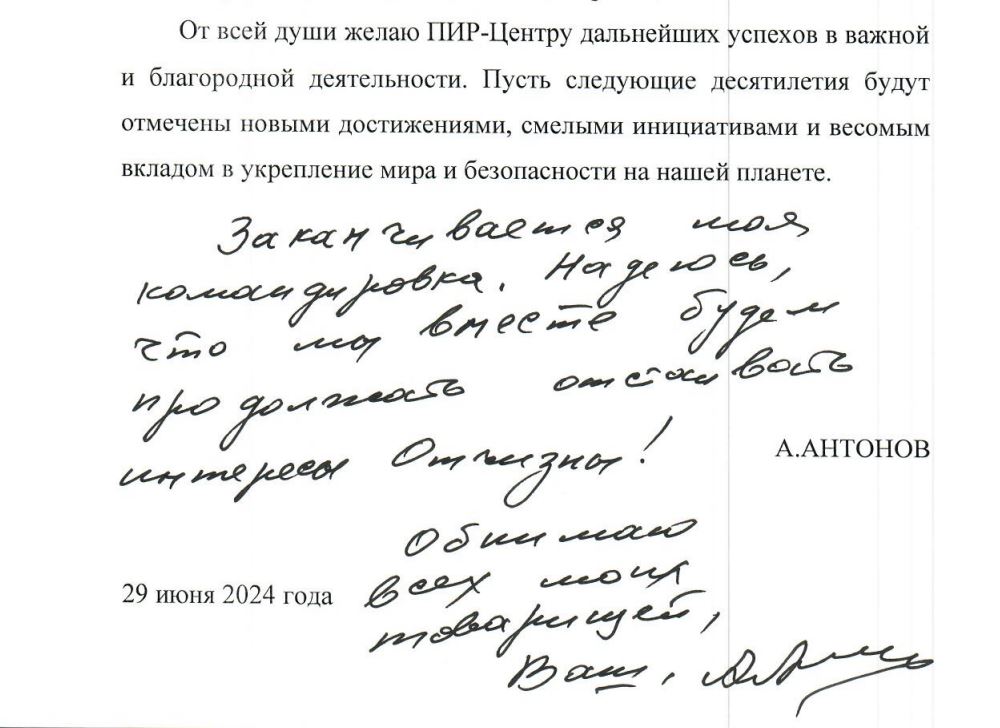 От всей души желаю ПИР-Центру дальнейших успехов в важной
и благородной деятельности. Пусть следующие десятилетия будут
отмечены новыми достижениями, смелыми инициативами и весомым
вкладом в укрепление мира и безопасности на нашей планете.
Заканчивается моя
командировка. Надеюсь,
что мы вместе будем
продолжать отстаивать
интересы Отчизны!
А.АНТОНОВ
Обнимаю
всех моих
товарищей,
29 июня 2024 года
Ваш, А.Антонов